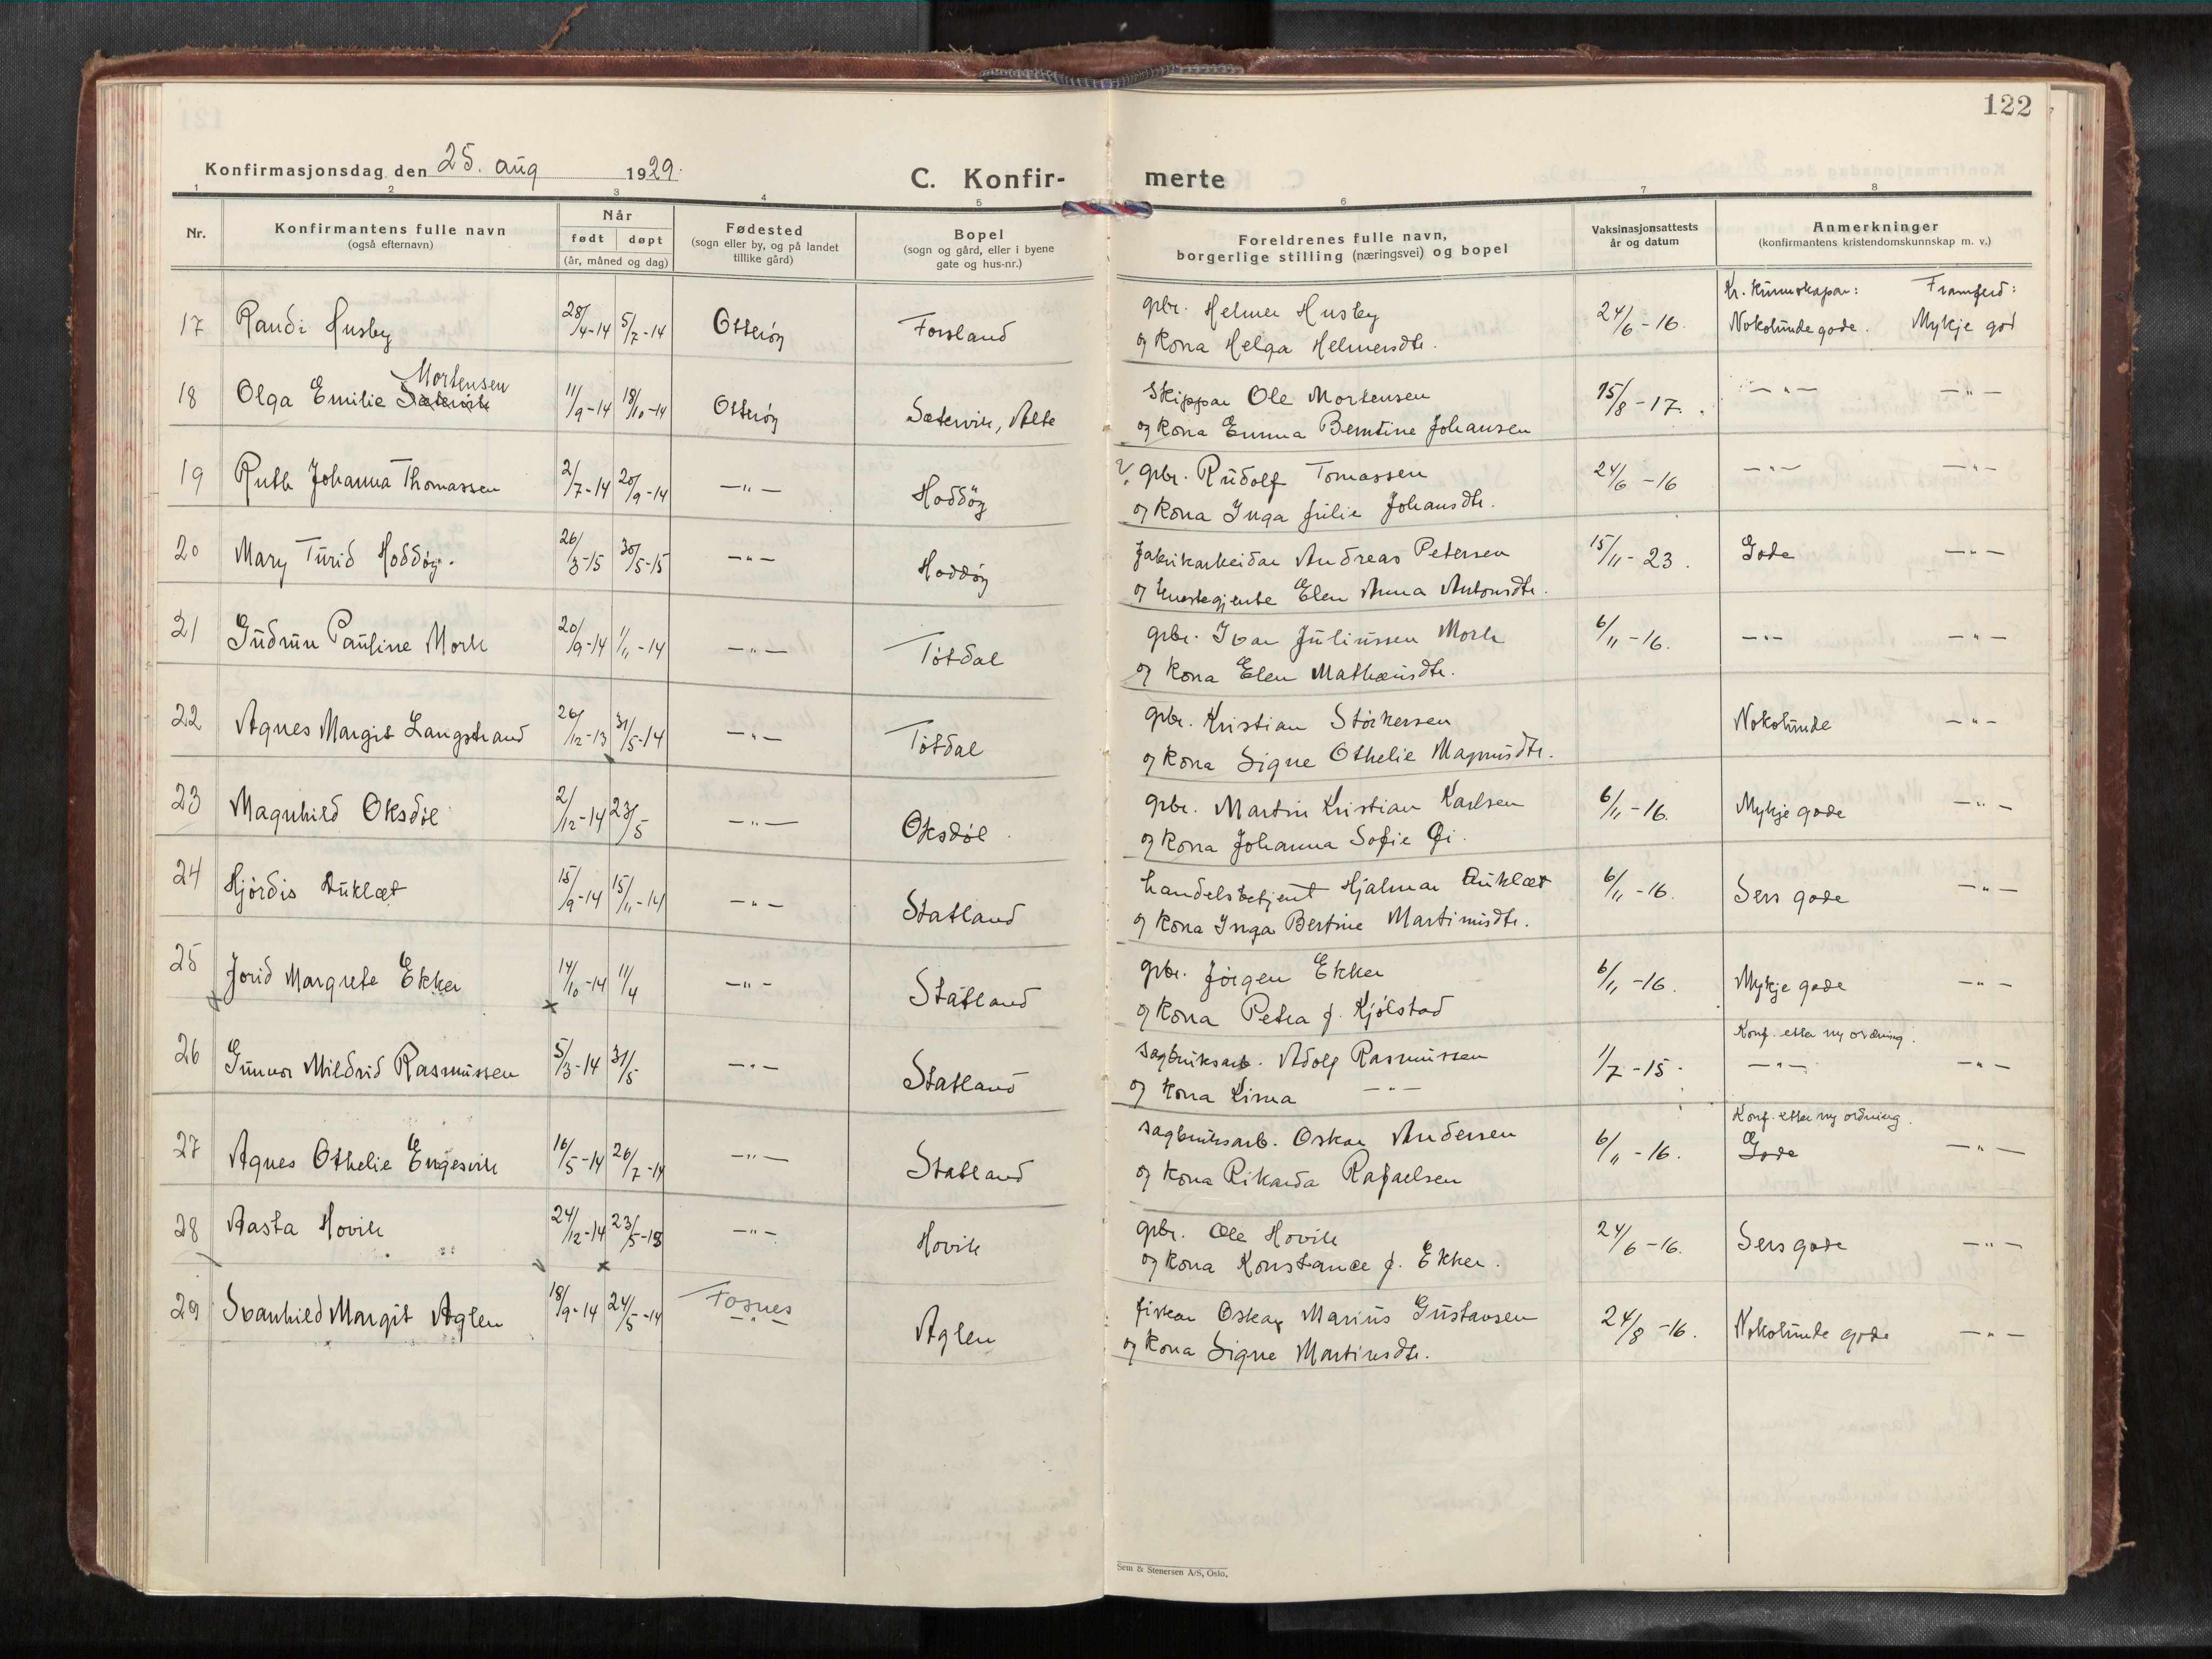 122
Konfirmasjonsdag den 25. aug 1929.
C. Konfir- merte
1 2 3 4 5 6 7 8
Nr.
Konfirmantens fulle navn
(også efternavn)
Når
født døpt
(år, måned og dag)
Fødested
(sogn eller by, og på landet
tillike gård)
Bopel
(sogn og gård, eller i byene
gate og hus-nr.)
Foreldrenes fulle navn,
borgerlige stilling (næringsvei) og bopel
Vaksinasjonsattests
år og datum
Anmerkninger
(konfirmantens kristendomskunnskap m. v.)
Kr. kunnskapar: Framferd:
17 Randi Husby 28/4-14 5/7-14 Otterøy Forsland gbr. Helmer Husby 24/6-16. Nokolunde gode. Mykje god
og kona Helga Helmersdtr.
Mortensen
18 Olga Emilie Sætervik 11/9-14 18/10-14 Otterøy Sætervik, Alte skippar Ole Mortensen 15/8-17. —"— —"—
og kona Emma Berntine Johansen
19 Ruth Johanna Thomassen 2/7-14 20/9-14 —"— Hoddøy gbr. Rudolf Tomassen 24/6-16 —"— —"—
og kona Inga Julie Johansdtr.
20 Mary Turid Hoddøy. 26/3-15 30/5-15 —"— Hoddøy fabrikarbeidar Andreas Petersen 15/11-23. Gode —"—
og Elen Anna Antonsdtr.
21 Gudrun Pauline Mork 20/9-14 1/11-14 —"— Tøtdal gbr. Ivar Juliussen Mork 6/11-16. —"— —"—
og kona Elen Mathæusdtr.
22 Agnes Margit Langstrand 26/12-13 31/5-14 —"— Tøtdal gbr. Kristian Størkersen Nokolunde —"—
og kona Signe Othelie Magnusdtr.
23 Magnhild Oksdøl 2/12-14 23/5 —"— Oksdøl gbr. Martin Kristian Karlsen 6/11-16. Mykje gode —"—
og kona Johanna Sofie
24 Hjørdis Auklæt 15/9-14 15/11-14 —"— Statland handelsbetjent Hjalmar Auklæt 6/11-16. Sers gode —"—
og kona Inga Bertine Martinusdtr.
25 Jorid Margrete Ekker 14/10-14 11/4 —"— Statland gbr. Jørgen Ekker 6/11-16. Mykje gode —"—
og kona Petra f. Kjølstad
Konf. etter ny ordning.
26 Gunvor Mildrid Rasmussen 5/3-14 31/5 —"— Statland sagbruksarb. Adolf Rasmussen 1/7-15. —"— —"—
og kona Lina —"—
Konf. etter ny ordning.
27 Agnes Othelie Engesvik 16/5-14 26/7-14 —"— Statland sagbruksarb. Oskar Andersen 6/11-16. Gode —"—
og kona Rikarda Rafaelsen
28 Aasta Hovik 24/12-14 23/5-15 —"— Hovik gbr. Ole Hovik 24/6-16. Sers gode —"—
og kona Konstance f. Ekker.
29 Svanhild Margit Aglen 18/9-14 24/5-14 Fosnes Aglen fiskar Oskar Marius Gustavsen 24/8-16. Nokolunde gode —"—
—"—
og kona Signe Martinsdtr.
Sem & Stenersen A/S, Oslo.